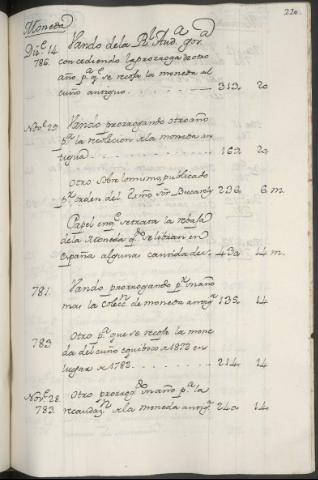 220.
Moneda
Dic.e 14. Vando dela Rl. Aud.a Gov.a
786. concediendo la prorroga de otro
año p.a q.e se recoja la moneda del
cuño antiguo. 313. 20
Nov.e 23. Vando prorrogando otro año
p.a la recoleccion de la moneda an
tigua 169. 20
Otro sobre lo mismo, publicado
p.r orden del Exmo Sor. Bucarely 236. 6 m.
Papel en q.e se trata la
dela Moneda q.e se libran en
España algunas cantidades. 14 m.
781. Vando prorrogando p.r un año
mas la colec.n de moneda antig.a 135. 14
783. Otro p.a que se recoja la mone
da del cuño equiboco de 1873 en
lugar de 1783. 214. 14
Nov.e 28. Otro prorrog.do un año p.a la
783. recaudaz.n de la moneda antig.a 240. 14